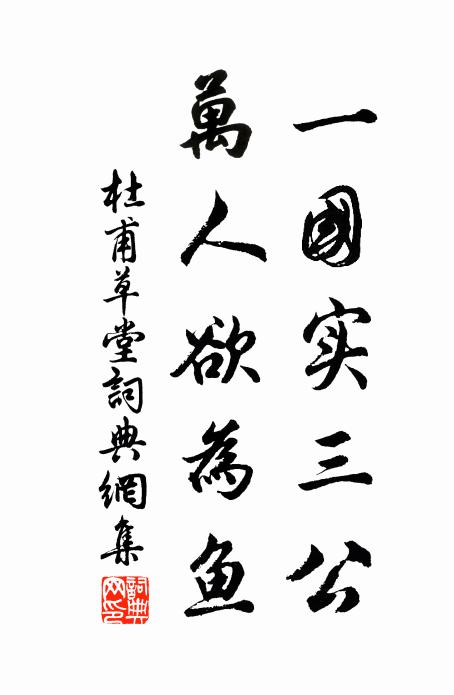 一國实三公
萬人欲為鱼
杜甫草堂詞典網集
詞典网印